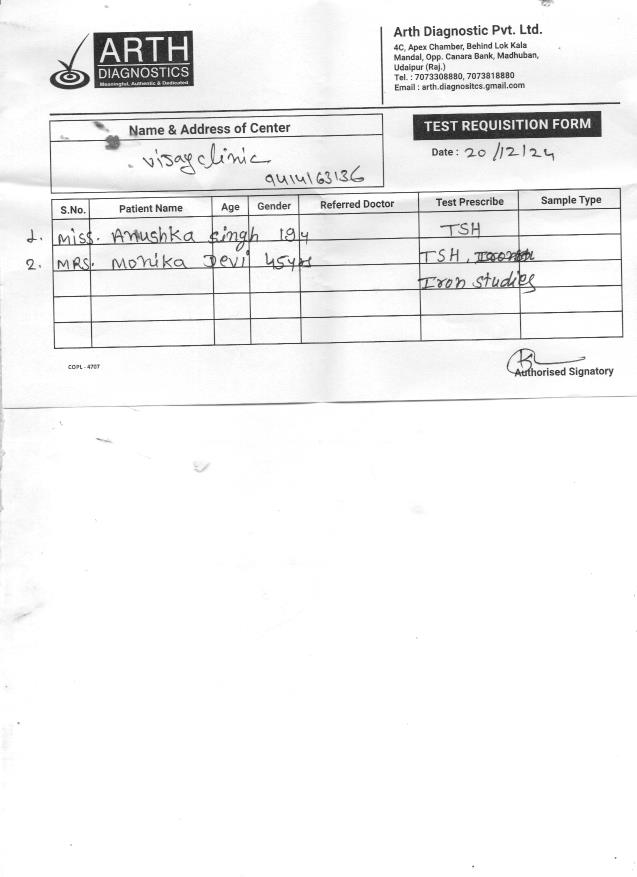 ARTH
DIAGNOSTICS
Meaningful, Authentic & Dedicated
Arth Diagnostic Pvt. Ltd.
4C, Apex Chamber, Behind Lok Kala
Mandal, Opp. Canara Bank, Madhuban,
Udaipur (Raj.)
Tel. : 7073308880, 7073818880
Email : arth.diagnositcs.gmail.com
Name & Address of Center
Vijay clinic
9414163136
TEST REQUISITION FORM
Date : 20/12/24
S.No. Patient Name Age Gender Referred Doctor Test Prescribe Sample Type
1. Miss. Anushka Singh 19y TSH
2. MRS. Monika Devi 45yrs TSH,
Iron studies
COPL - 4707
Authorised Signatory